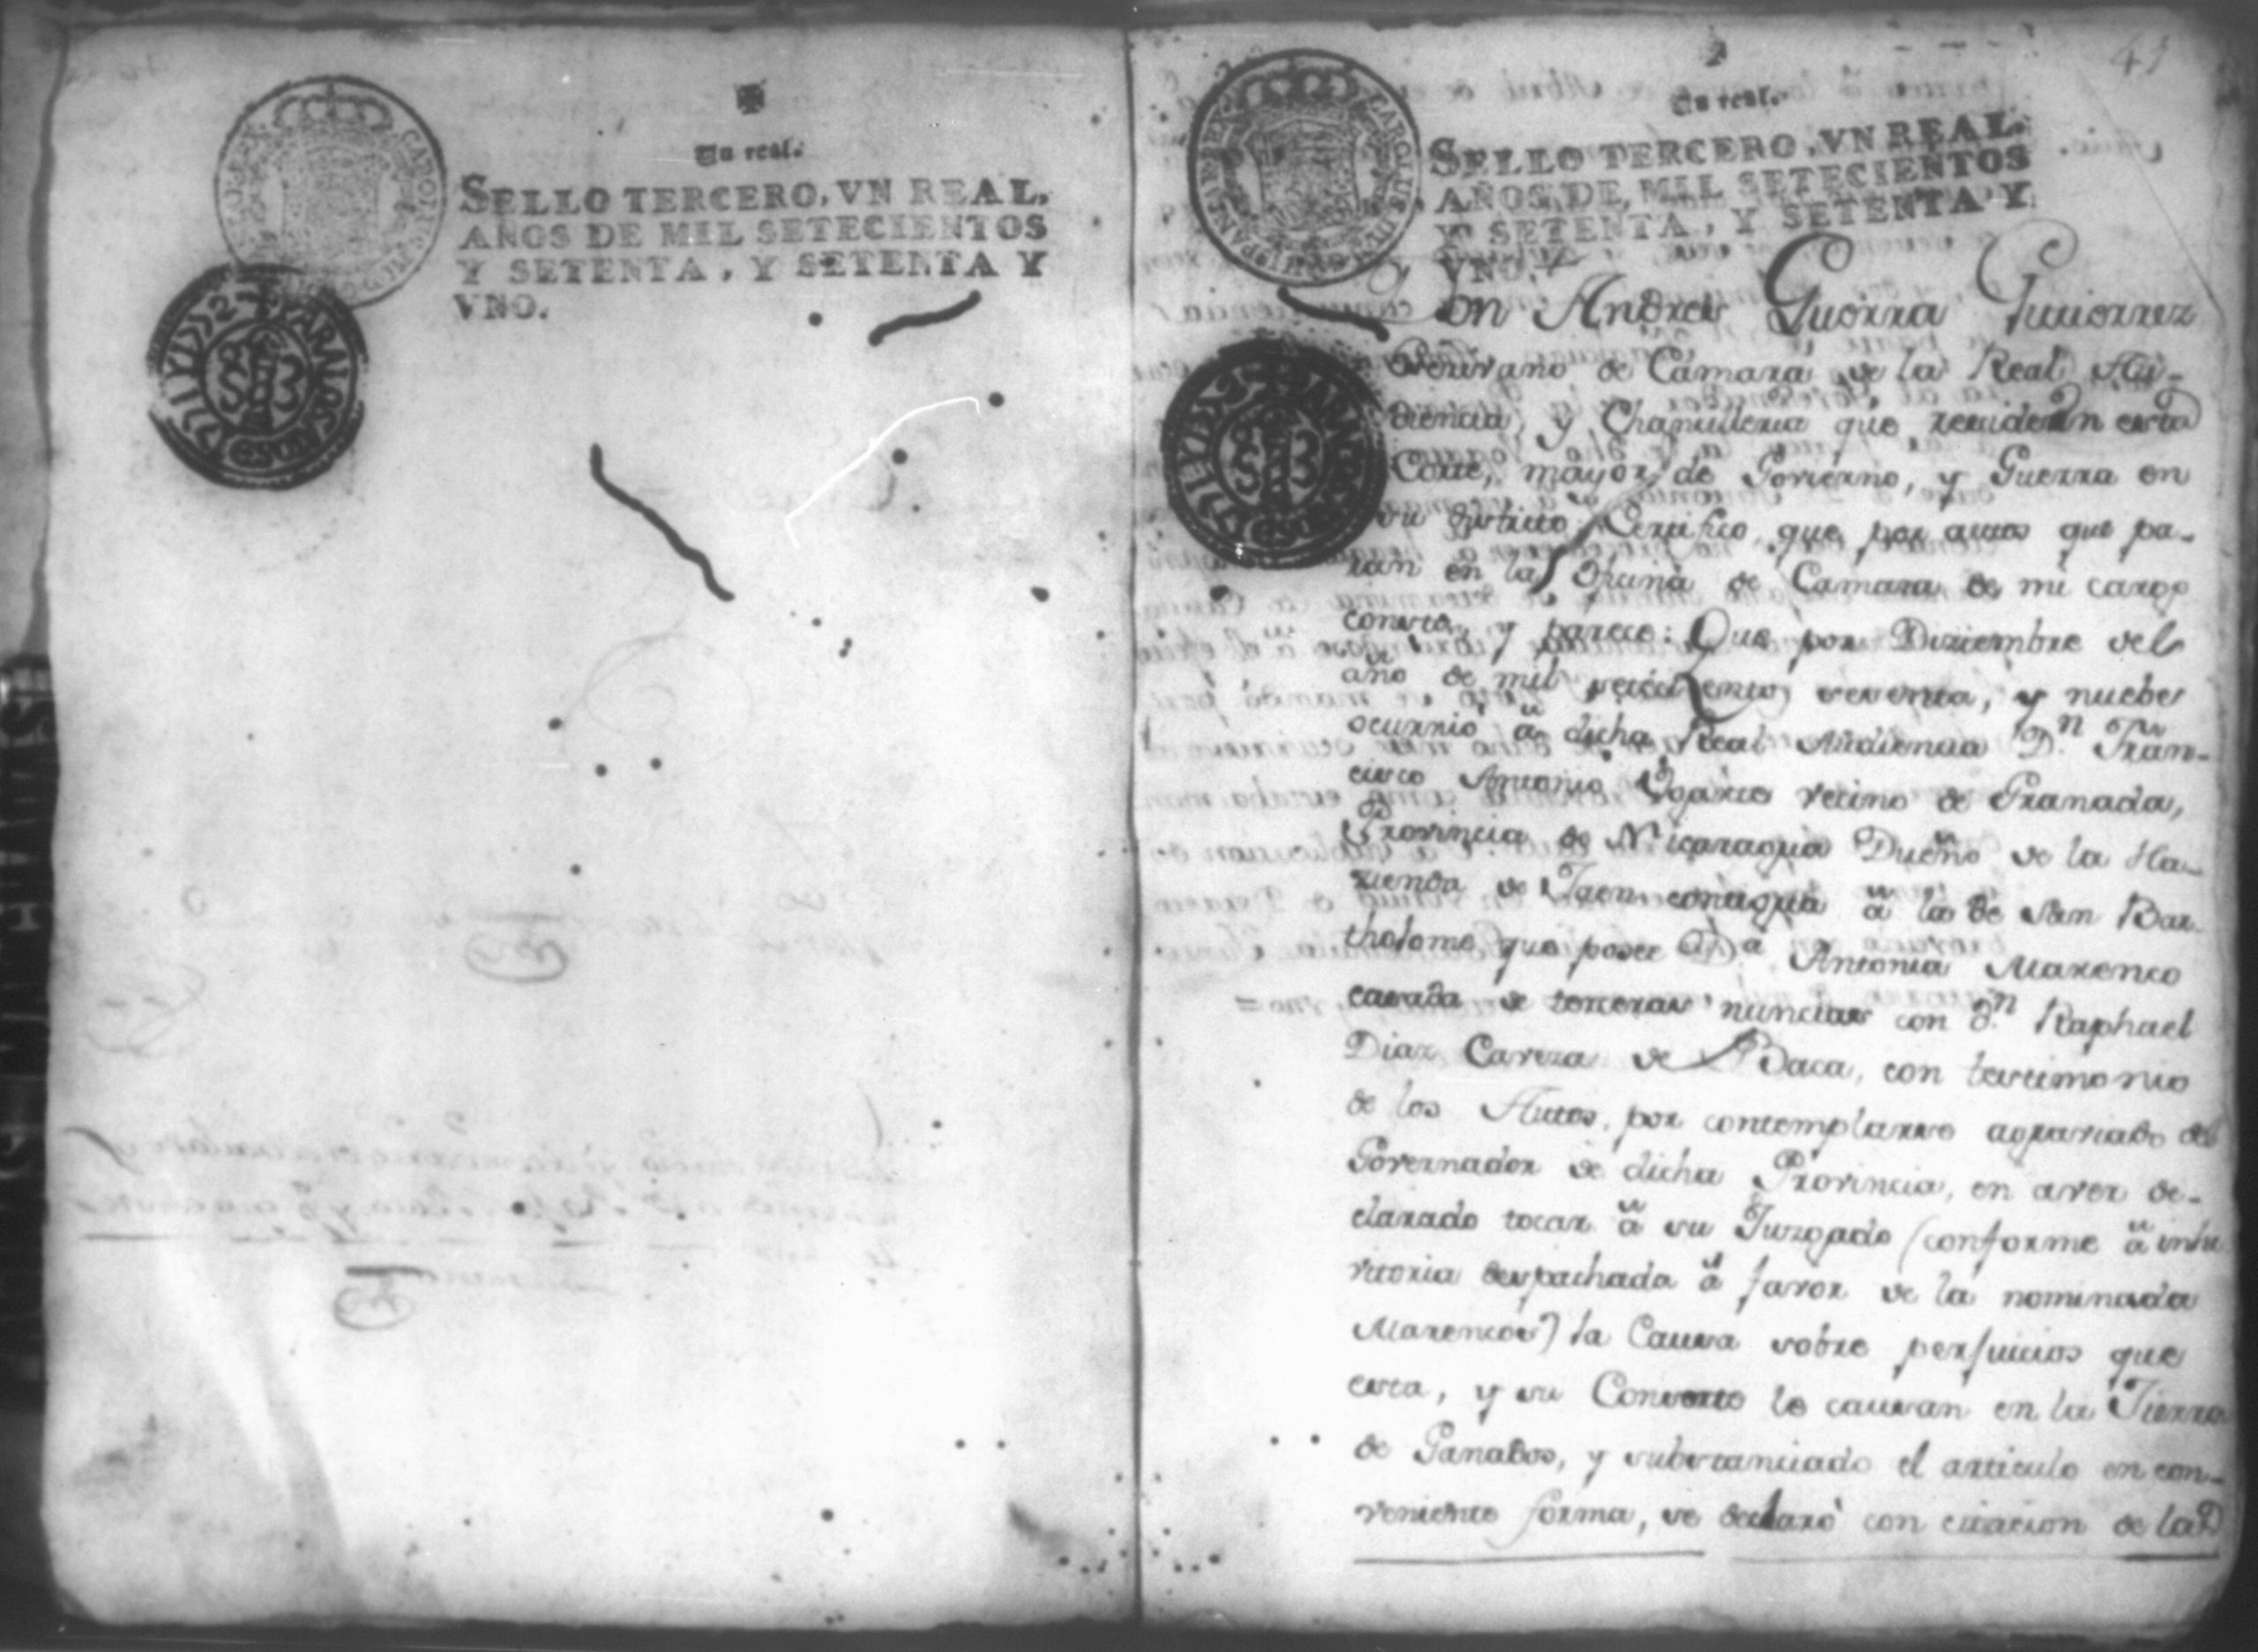 Un real.
SELLO TERCERO, VN REAL,
AÑOS DE MIL SETECIENTOS
Y SETENTA, Y SETENTA Y
VNO.
41
Un real.
SELLO TERCERO, VN REAL,
AÑOS DE MIL SETECIENTOS
Y SETENTA, Y SETENTA Y
VNO.
Don Andres Guerra Gutierrez
Escrivano de Camara de la Real Au-
diencia, y Chancilleria que reciden esta
Corte, mayor de Govierno, y Guerra en
su distrito: Certifico, que por autos que pa-
ran en la Oficina de Camara de mi cargo
consta, y parece: Que por Diziembre del
año de mil setecientos sesenta, y nuebe
ocurrió â dicha Real Audiencia D.n Fran-
cisco Antonio Ugarte vecino de Granada,
Provincia de Nicaragua Dueño de la Ha-
zienda de Jaen contigua â la de San Bar-
tholome, que posee D.a Antonia Marenco
casada de terceras nuncias con d.n Raphael
Diaz Caveza de Baca, con testimonio
de los Autos, por contemplarse agraviado del
Governador de dicha Provincia, en aver de-
clarado tocar â su Juzgado (conforme â inhi
vitoria despachada â favor de la nominada
Marenco) la Causa sobre perjuicios que
esta, y su Consorte le causan en la Tierra
de Ganados, y substanciado el articulo en con-
veniente forma, se declaró con citacion de la